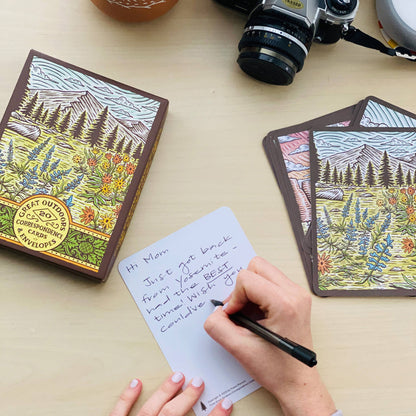 GREAT OUTDOORS
20
CORRESPONDENCE
CARDS
& ENVELOPES
Hi Mom
Just got back
from yosemite -
had the BEST
time! Wish you
could've